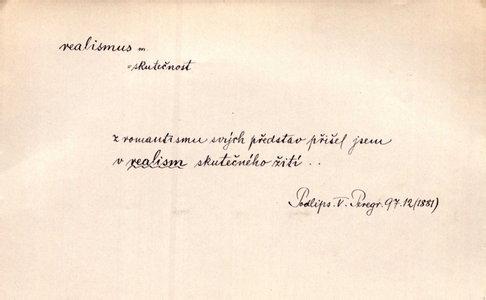 realismus m
= skutečnost
z romantismu svých představ přišel jsem
v realism skutečného žití . .
Podlips. V. Peregr. 97.12 (1881)